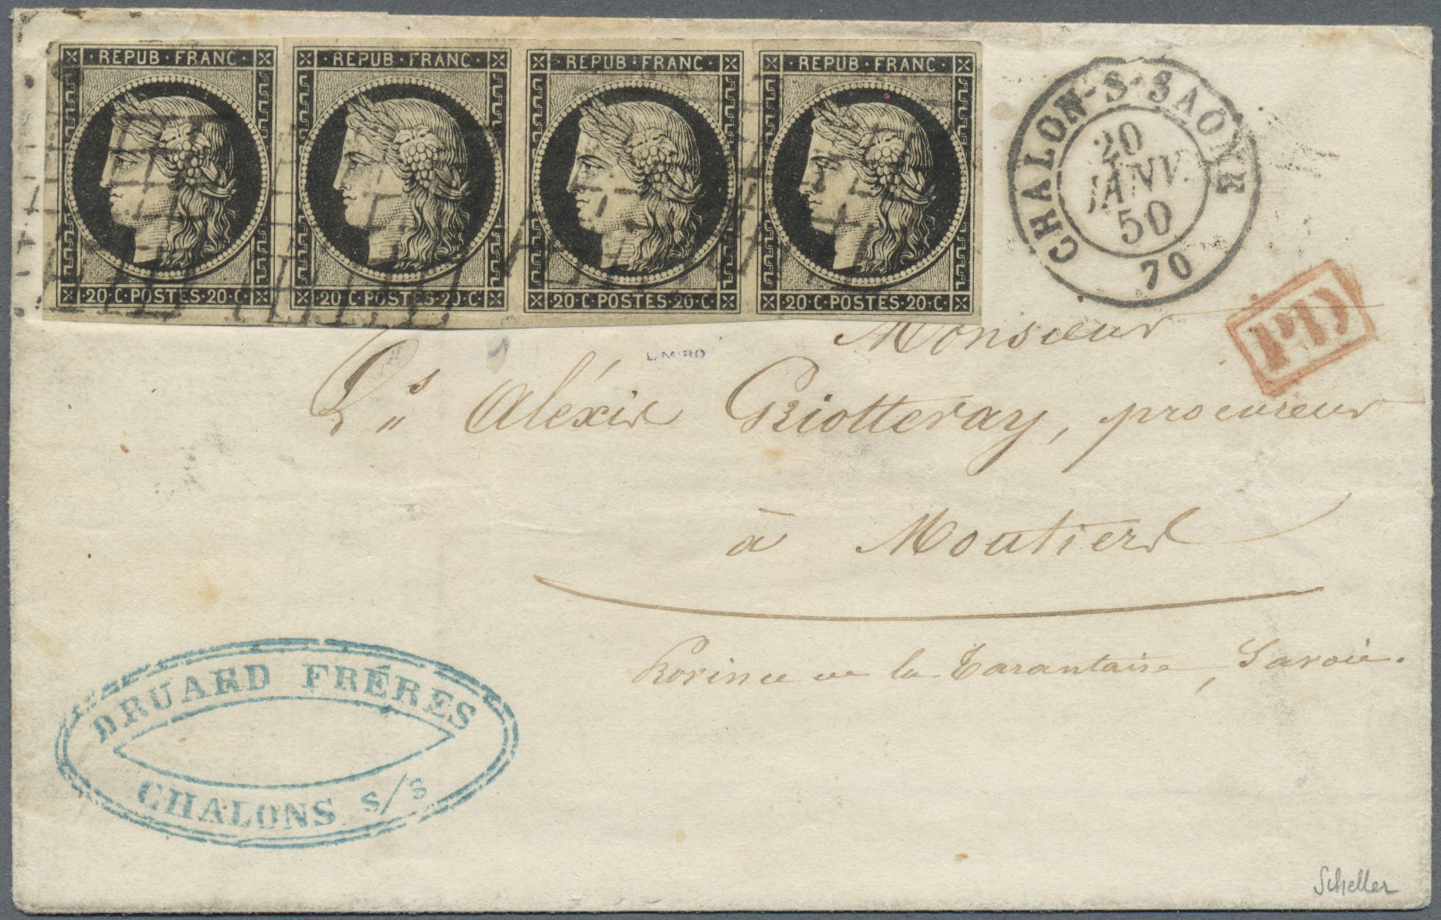 REPUB·FRANC· REPUB·FRANC· REPUB·FRANC· REPUB·FRANC·
20·C·POSTES·20·C· 20·C·POSTES·20·C· 20·C·POSTES·20·C· 20·C·POSTES·20·C·
CHALON-S-SAONE
20
JANV.
50
70
PD
Monsieur
Ls Aléxis Griotteray, procureur
à Moutiers
Province de la Tarantaise, Savoie.
DRUARD FRÉRES
CHALONS S/S
Scheller